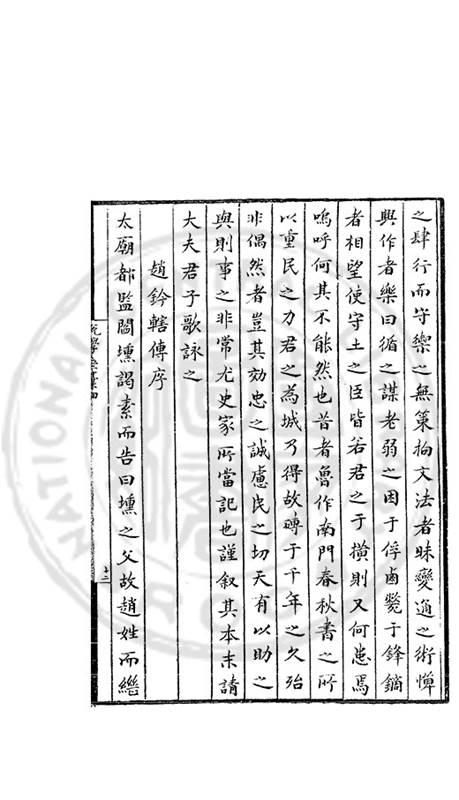 之肆行而守禦之無策拘文法者昧變通之術憚
興作者樂曰循之謀老弱之困于俘鹵斃于鋒鏑
者相望使守土之臣皆若君之于橫則又何患焉
嗚呼何其不能然也昔者魯作南門春秋書之所
以重民之力君之為城乃得故磚于千年之久殆
非偶然者豈其効忠之誠慮民之切天有以助之
與則事之非常尤史家所當記也謹叙其本末請
大夫君子歌詠之
趙鈐轄傳序
太廟都監閻壎謁素而告曰壎之父故趙姓而繼
十二
NATIONAL